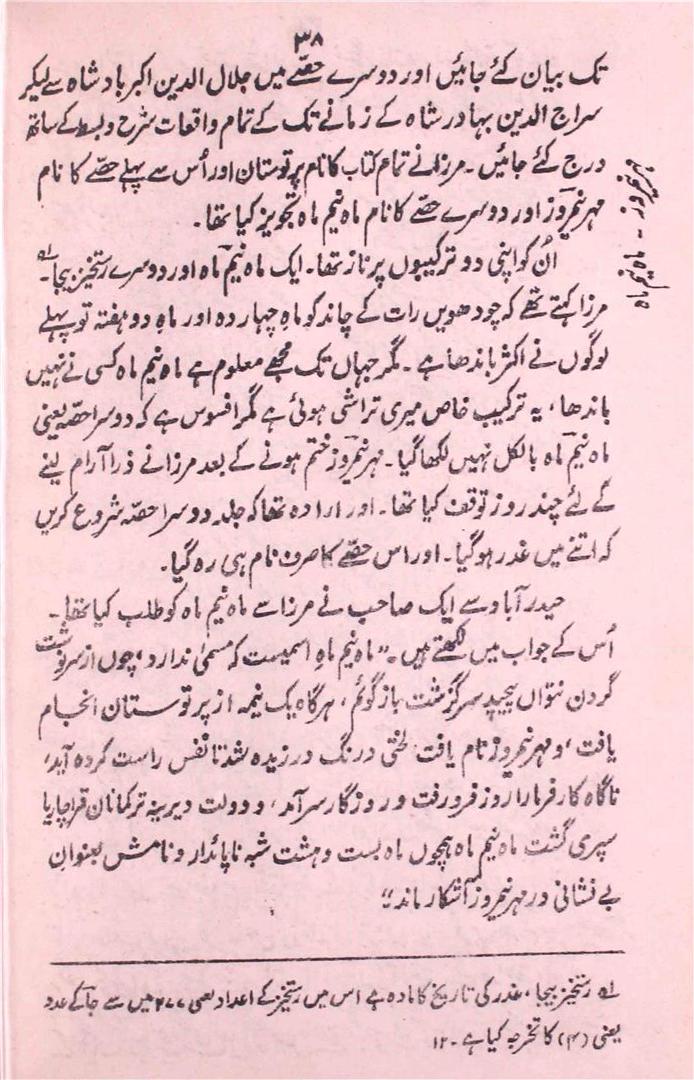 ۳۸
تک بیان کئے جائیں اور دوسرے حصّے میں جلال الدین اکبر بادشاہ سے لیکر
سراج الدین بہادر شاہ کے زمانے تک کے تمام واقعات شرح و بسط کے ساتھ
درج کئے جائیں۔ مرزا نے تمام کتاب کا نام پرتوستان اور اُس سے پہلے حصّے کا نام
مہر نیمروز اور دوسرے حصّے کا نام ماہ نیم ماہ تجویز کیا تھا۔
مہر نیمروز ۔ ماہ نیم ماہ
اُن کو اپنی دو ترکیبوں پر ناز تھا۔ ایک ماہ نیم ماہ اور دوسرے رستخیز بیجا۔ لہ
مرزا کہتے تھے کہ چودھویں رات کے چاند کو ماہِ چہاردہ اور ماہِ دو ہفتہ تو پہلے
لوگوں نے اکثر باندھا ہے۔ مگر جہاں تک مجھے معلوم ہے ماہ نیم ماہ کسی نے نہیں
باندھا، یہ ترکیب خاص میری تراشی ہوئی ہے مگر افسوس ہے کہ دوسرا حصّہ یعنی
ماہ نیم ماہ بالکل نہیں لکھا گیا۔ مہر نیمروز ختم ہونے کے بعد مرزا نے ذرا آرام لینے
کے لئے چند روز توقف کیا تھا۔ اور ارادہ تھا کہ جلد دوسرا حصّہ شروع کریں
کہ اتنے میں غدر ہو گیا۔ اور اس حصّے کا صرف نام ہی رہ گیا۔
حیدر آباد سے ایک صاحب نے مرزا سے ماہ نیم ماہ کو طلب کیا تھا۔
اُس کے جواب میں لکھتے ہیں۔ "ماہ نیم ماہ اسمیست کہ مسمّیٰ ندارد، چوں از سر نوشت
گردن نتواں پیچید سرگزشت باز گوئم، ہرگاہ یک نیمہ از پرتوستان انجام
یافت، و مہر نیمروز نام یافت لختی درنگ ورزیدہ شد تا نفس راست کردہ آید،
ناگاہ کارفرما را روز فرو رفت و روزگار سر آمد، و دولت دیرینہ ترکمانان قراچاریا
سپری گشت ماہ نیم ماہ ہمچوں ماہ بست و ہشت شبہ ناپائدار و نامش بعنوانِ
بے نشانی در مہر نیمروز آشکار ماند"
لہ رستخیز بیجا، غدر کی تاریخ کا مادہ ہے اس میں رستخیز کے اعداد یعنی ۱۲۷۷ میں سے جا کے عدد
یعنی (۴) کا تخرجہ کیا ہے۔ ۱۲